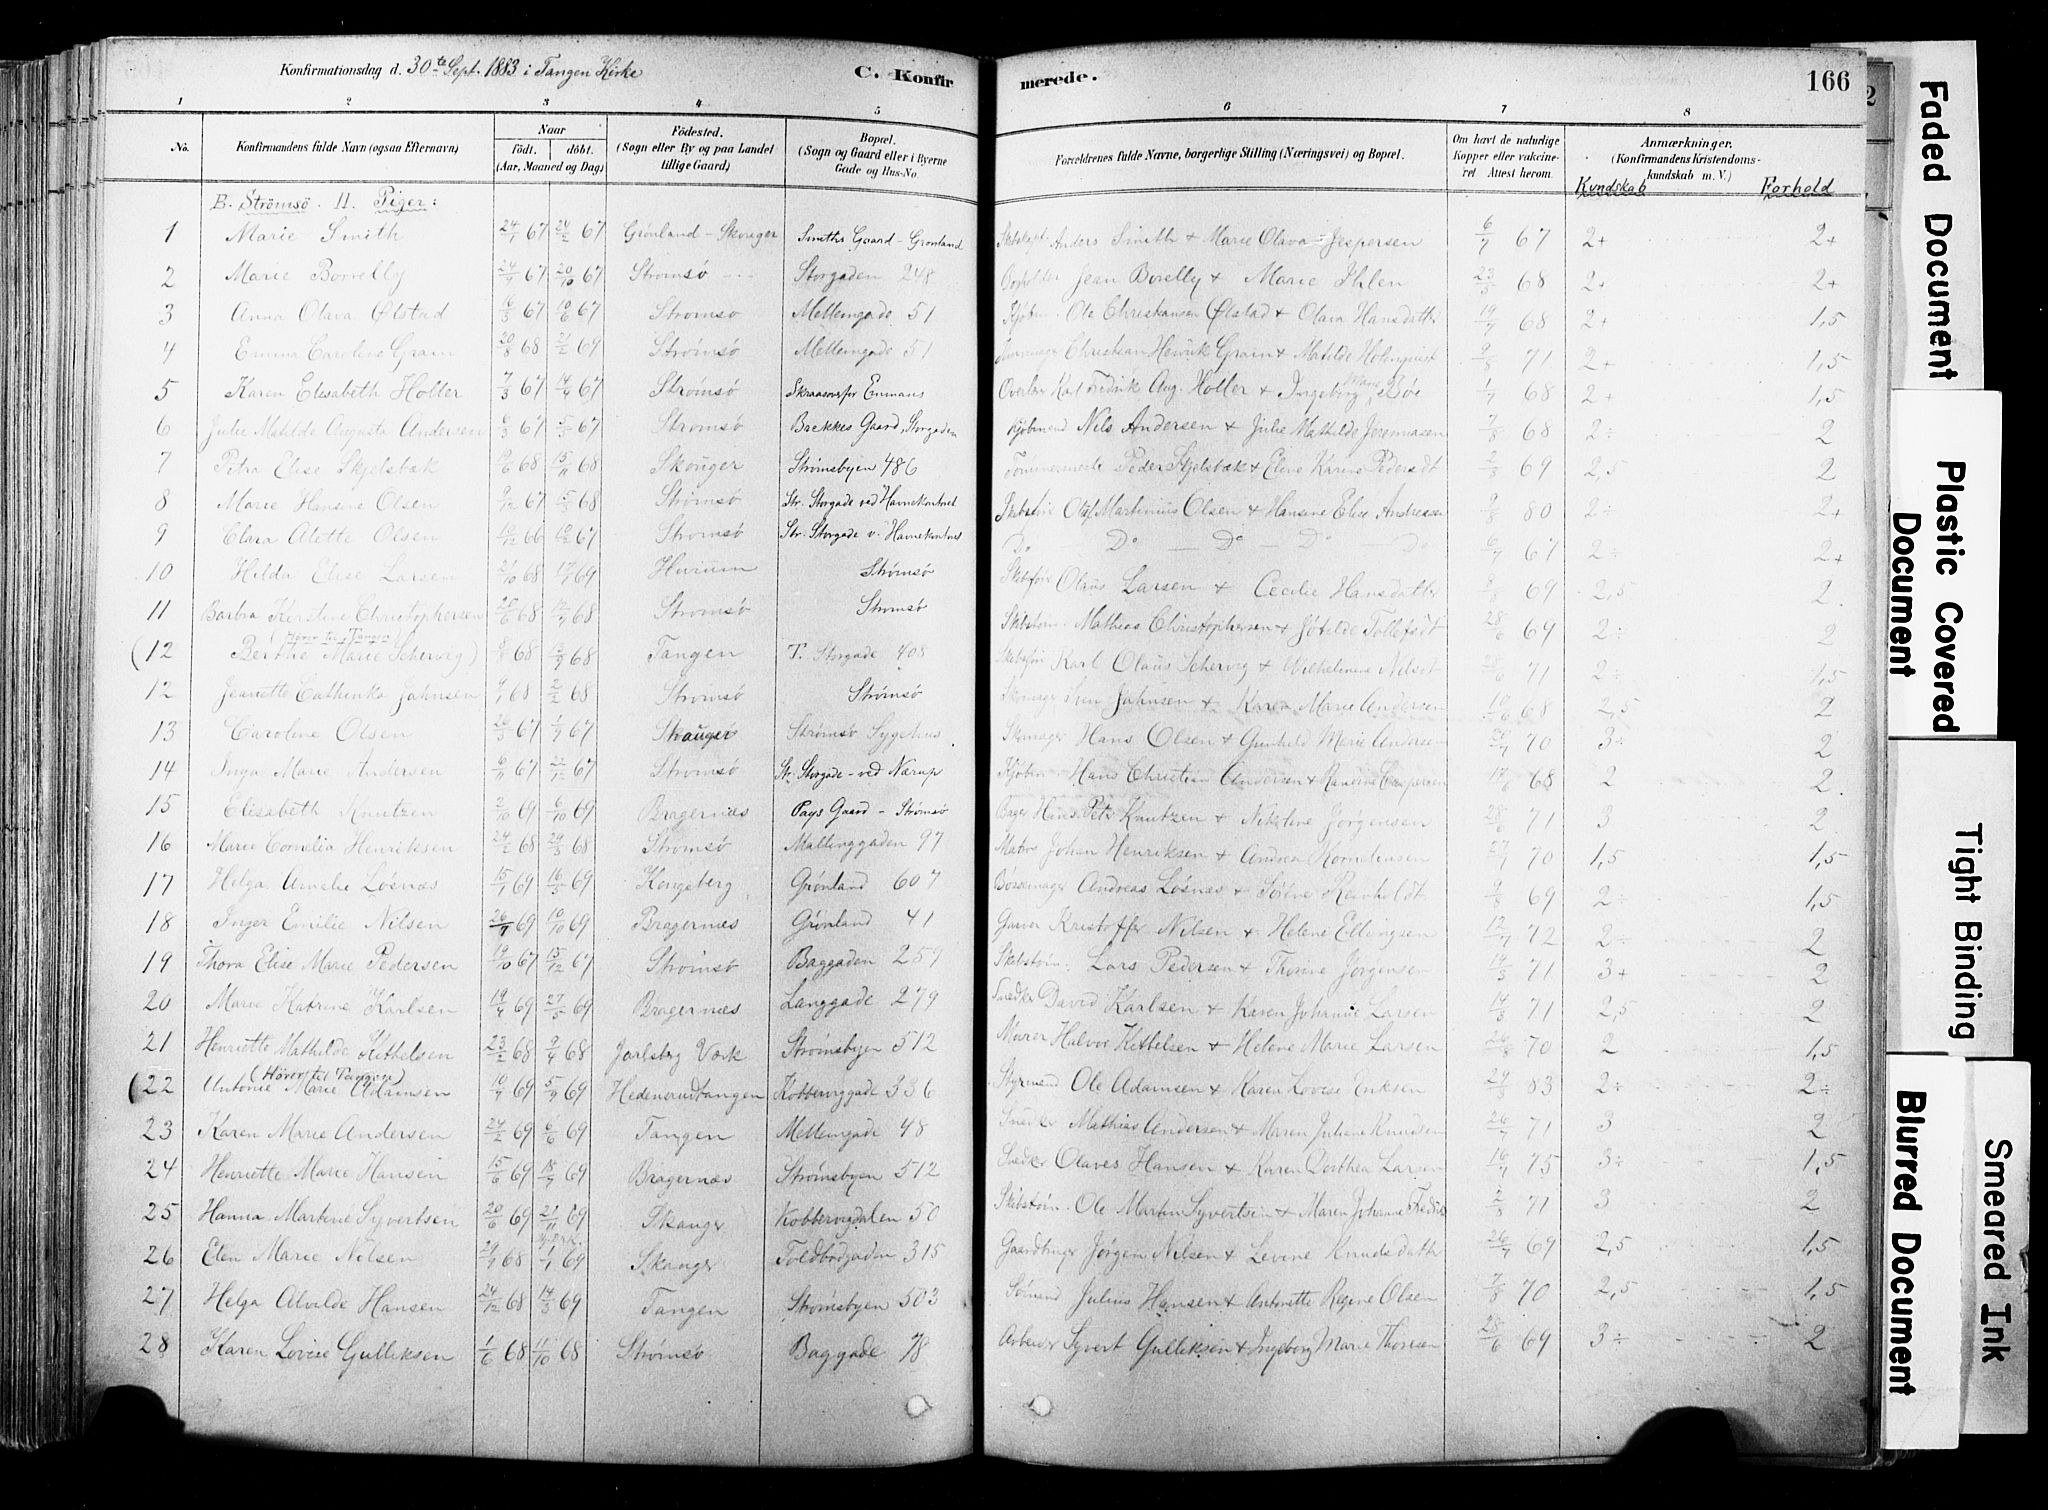 Konfirmationsdag d. 30te Sept. 1883 i Tangen Kirke C. Konfirmerede. 166
1 2 3 4 5 6 7 8
No. Konfirmandens fulde Navn (ogsaa Efternavn) Naar födt. döbt. (Aar, Maaned og Dag) Födested. (Sogn eller By og paa Landet tillige Gaard) Bopæl. (Sogn og Gaard eller i Byerne Gade og Hus-No. Forældrenes fulde Navne, borgerlige Stilling (Næringsvei) og Bopæl. Om havt de naturlige Kopper eller vaccineret Attest herom. Anmærkninger. (Konfirmandens Kristendomskundskab m. V.) Kundskab Forhold
B. Strömsö. II. Piger:
1 Marie Smith 24/1 67 24/2 67 Grönland - Skouger Smiths Gaard - Grönland Anders Smith + Marie Olava Jespersen 6/7 67 2+ 2+
2 Marie Borrelly 67 20/10 67 Strømsø Storgaden 248 Jean Borelly + Marie Ihlen 23/3 68 2+ 2+
3 Anna Olava Ølstad 16/3 67 10/6 67 Strømsø Mellemgade 51 Kjøbm. Ole Christiansen Ølstad + Olava Hansdatter 19/7 68 2+ 1,5
4 Emma Caroline Gram 20/8 68 21/2 69 Strømsø Mellemgade 51 Christian Henrik Gram + Matilde Holmquist 9/8 71 2+ 1,5
5 Karen Elisabeth Holler 7/3 67 14/4 67 Strømsø Emmaus Karl Fredrik Aug. Holler + Ingeborg Marie Böe 1/7 68 2+ 1,5
6 Julie Matilde Augusta Andersen 6/3 67 5/5 67 Strømsø Bækkes Gaard, Storgaden Kjøbmand Nils Andersen + Julie Mathilde Jeremiasen 7/8 68 2÷ 2
7 Petra Elise Skjelsbæk 68 15/11 68 Skouger Strømsbyen 486 Peder Skjelsbæk + Eline Karine Pedersdt 2/8 69 2,5 2
8 Marie Hansine Olsen 9/12 67 68 Strømsø Str. Storgade ved Havnekontoret Oluf Martinius Olsen + Hansine Elise Andreasen 9/8 80 2÷ 2+
9 Clara Alette Olsen 66 67 Strømsø Str. Storgade v. Havnekontoret Do Do Do Do Do 6/7 67 2÷ 2+
10 Hilda Elise Larsen 21/10 68 69 Hurum Strømsø Olaus Larsen + Cecilie Hansdatter 8/8 69 2,5 2.
11 Barbra Kirstine Christophersen 20/6 68 68 Strømsø Strømsø Skibstøm. Mathias Christophersen + Tollefsdt 28/6 69 2÷ 2
(Hører til Tangen)
(12 Berthe Marie Schervig) 68 68 Tangen T. Storgade 408 Karl Olaus Schervig + Wilhelmine Nilsdt 71 2÷ 1,5
12 Jeanette Cathinka Jahnsen 68 2/2 68 Strømsø Strømsø Skomager Jahnsen + Karen Marie Andersen 10/6 68 2,5 2
13 Caroline Olsen 67 1/9 67 Skauger Strømsø Sygehus Skomager Hans Olsen + Gunhild Marie Andersen 20/7 70 3÷ 2
14 Inga Marie Andersen 67 22/12 67 Strømsø Str. Storgade - ved Nærup Kjøbm. Hans Christian Andersen + Caspersen 17/6 68 2 2.
15 Elisabeth Knutzen 2/10 69 6/10 69 Bragernæs Pays Gaard - Strømsø Bager Hans Peter Knutzen + Nikoline Jørgensen 28/6 71 3 2
16 Marie Cornelia Henriksen 24/2 68 29/3 68 Strømsø Mallinggaden 97 Matros Johan Henriksen + Andrea Korneliusen 27/7 70 1,5 1,5
17 Helga Amalie Løsnæs 15/1 69 16/5 69 Kongsberg Grönland 607 Bøssemager Andreas Løsnæs + Reinholdt 9/8 69 2÷ 1,5
18 Inger Emilie Nilsen 26/7 69 10/10 69 Bragernæs Grønland 41 Garver Kristoffer Nilsen + Helene Ellingsen 12/7 72 2÷ 2
19 Thora Elise Marie Pedersen 67 15/12 67 Strømsø Baggaden 259 Skibstøm. Lars Pedersen + Thorine Jørgensen 14/3 71 3+ 2
20 Marie Katrine Karlsen 19/4 69 27/5 69 Bragernæs Langgade 279 Snedker David Karlsen + Karen Johanne Larsen 14/8 71 2,5 2
21 Henriette Mathilde Kittelsen 23/2 68 9/4 68 Jarlsberg Værk Strømsbyen 512 Murer Halvor Kittelsen + Helene Marie Larsen 26/8 70 2 1,5
(Hører til Tangen)
(22 Antonie Marie Adamsen 10/7 69 5/9 69 Hedenerudtangen Kobbervikgade 336 Styrmand Ole Adamsen + Karen Lovise Eriksen 29/3 83 2÷ 2÷
23 Karen Marie Andersen 24/2 69 6/6 69 Tangen Mellemgade 48 Snedker Mathias Andersen + Maren Juliane Knudsen 26/7 71 3 2
24 Henriette Marie Hansen 15/6 69 18/7 69 Bragernæs Strømsbyen 512 Snedker Olaves Hansen + Karen Dorthea Larsen 16/7 75 3÷ 1,5
25 Hanna Martine Syvertsen 20/6 69 21/11 69 Skauger Kobbervigdalen 50 Skibstøm. Ole Martin Syvertsen + Maren Johanne Fredriks 2/8 71 3 2
26 Elen Marie Nilsen 68 1/1 69 Skauger Toldbodgaden 315 Jørgen Nilsen + Levine Knudsdatter 26/7 69 2,5 1,5
27 Helga Alvilde Hansen 24/12 68 14/3 69 Tangen Strømsbyen 503 Sømand Julius Hansen + Antonette Regine Olsen 7/8 70 2,5 1,5
28 Karen Lovise Gulliksen 1/6 68 11/10 68 Strømsø Baggade 78 Arbeider Syvert Gulliksen + Ingeborg Marie Thoresen 28/6 69 3÷ 2
Faded Document
Plastic Covered Document
Tight Binding
Blurred Document
Smeared Ink